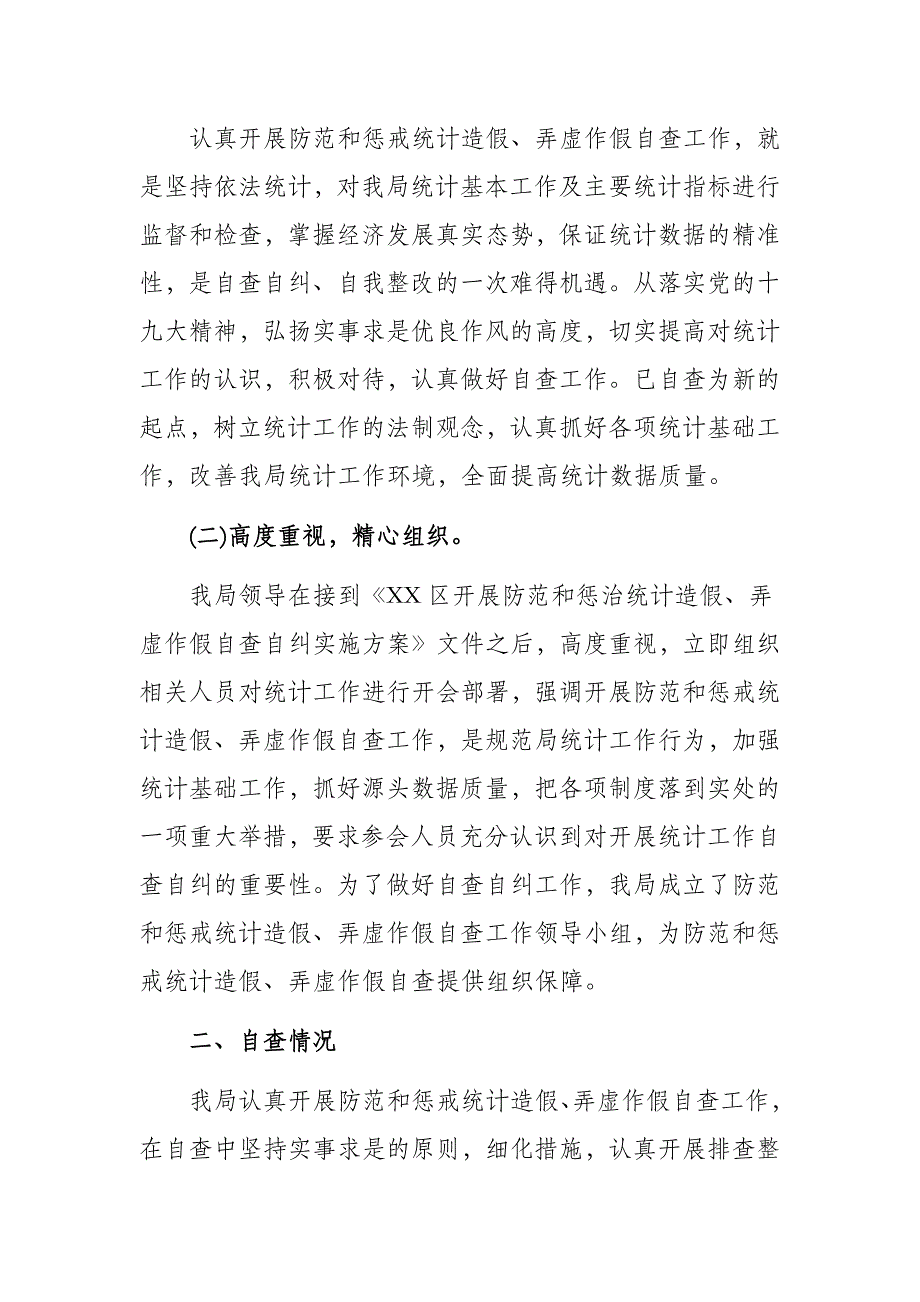 认真开展防范和惩戒统计造假、弄虚作假自查工作，就
是坚持依法统计，对我局统计基本工作及主要统计指标进行
监督和检查，掌握经济发展真实态势，保证统计数据的精准
性，是自查自纠、自我整改的一次难得机遇。从落实党的十
九大精神，弘扬实事求是优良作风的高度，切实提高对统计
工作的认识，积极对待，认真做好自查工作。已自查为新的
起点，树立统计工作的法制观念，认真抓好各项统计基础工
作，改善我局统计工作环境，全面提高统计数据质量。
(二)高度重视，精心组织。
我局领导在接到《XX 区开展防范和惩治统计造假、弄
虚作假自查自纠实施方案》文件之后，高度重视，立即组织
相关人员对统计工作进行开会部署，强调开展防范和惩戒统
计造假、弄虚作假自查工作，是规范局统计工作行为，加强
统计基础工作，抓好源头数据质量，把各项制度落到实处的
一项重大举措，要求参会人员充分认识到对开展统计工作自
查自纠的重要性。为了做好自查自纠工作，我局成立了防范
和惩戒统计造假、弄虚作假自查工作领导小组，为防范和惩
戒统计造假、弄虚作假自查提供组织保障。
二、自查情况
我局认真开展防范和惩戒统计造假、弄虚作假自查工作，
在自查中坚持实事求是的原则，细化措施，认真开展排查整